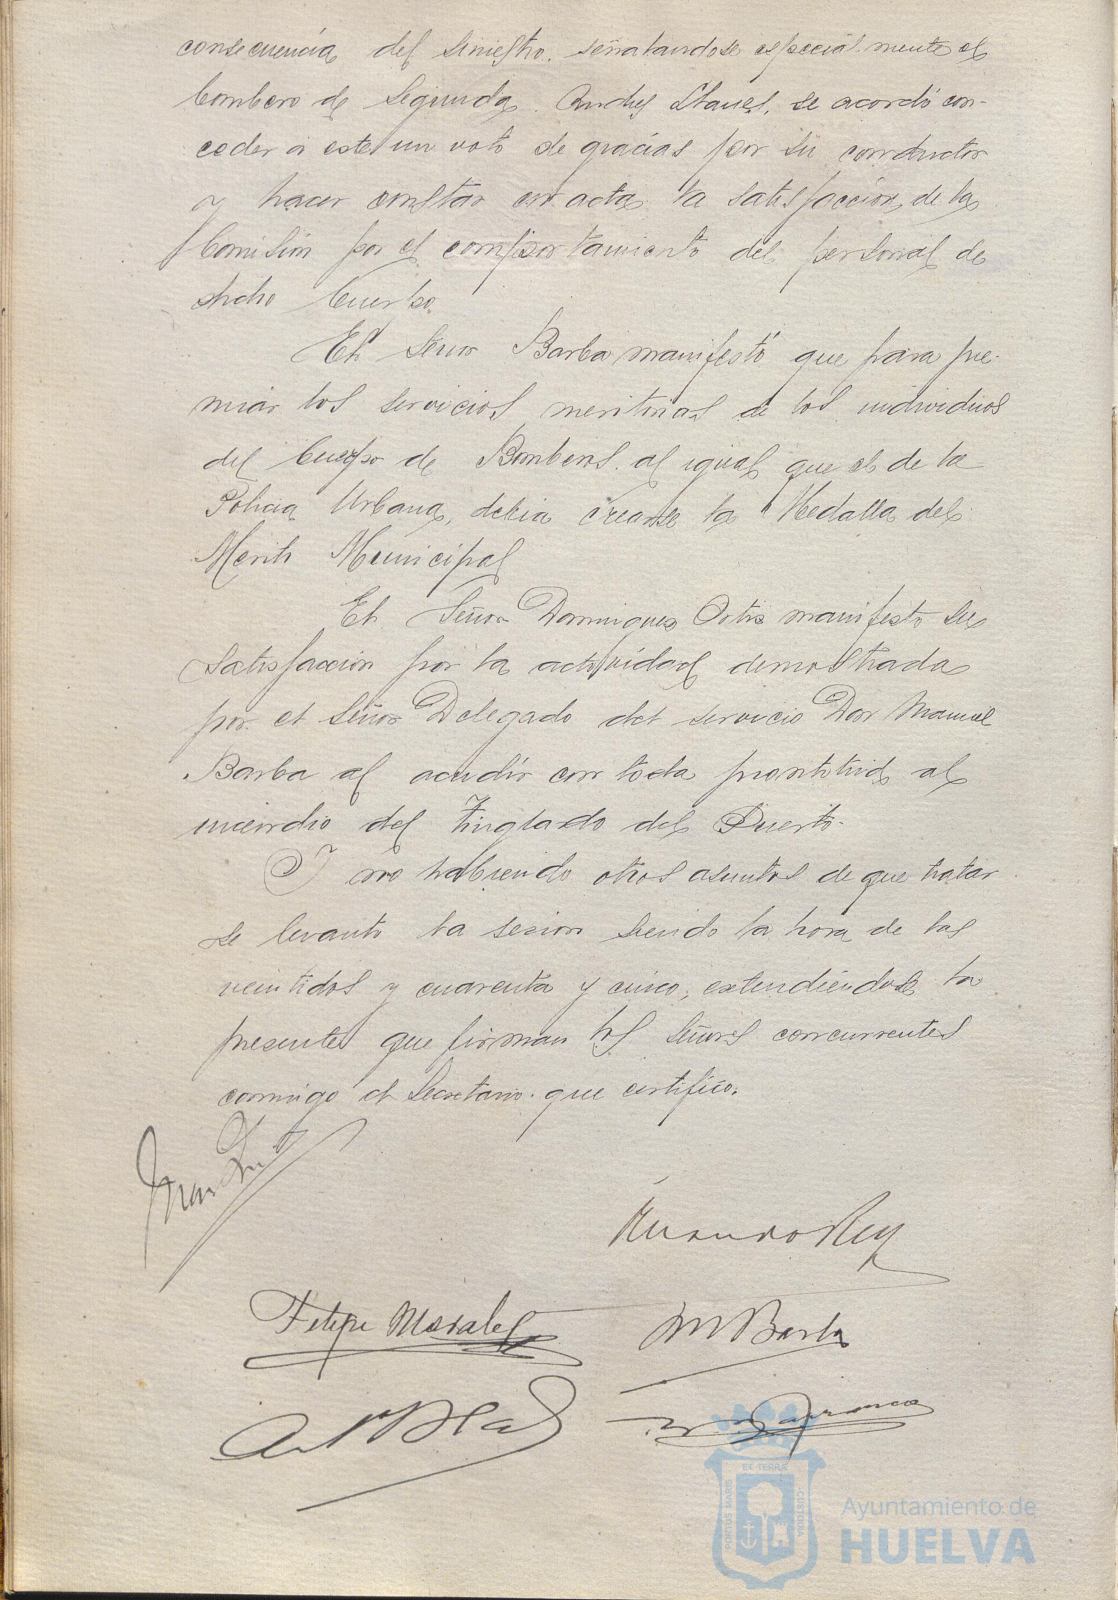 consecuencia del siniestro. señalandose especialmente el
bombero de segunda. Andres Llanes, se acordó con-
ceder a este un voto de gracias por su conductor
y hacer constar en acta la satisfaccion de la
Comisión por el comportamiento del personal de
dicho Cuerpo.
El Señor Barba manifestó que para pre-
miar los servicios meritorios de los individuos
del Cuerpo de Bomberos. al igual que el de la
Policia Urbana, debia crearse la Medalla del
Merito Municipal
El Señor Dominguez Ortiz manifesto su
satisfaccion por la actividad demostrada
por el Señor Delegado del servicio Don Manuel
Barba al acudir con toda prontitud al
incendio del Tinglado del Puerto.
Y no habiendo otros asuntos de que tratar
se levanto la sesion siendo la hora de las
veintidos y cuarenta y cinco, extendiendose la
presente que firman los Señores concurrentes
conmigo el Secretario. que certifico.
Rey
Felipe Morales
M Barba
PORTUS MARIS ET TERRÆ CUSTODIA
Ayuntamiento de
HUELVA